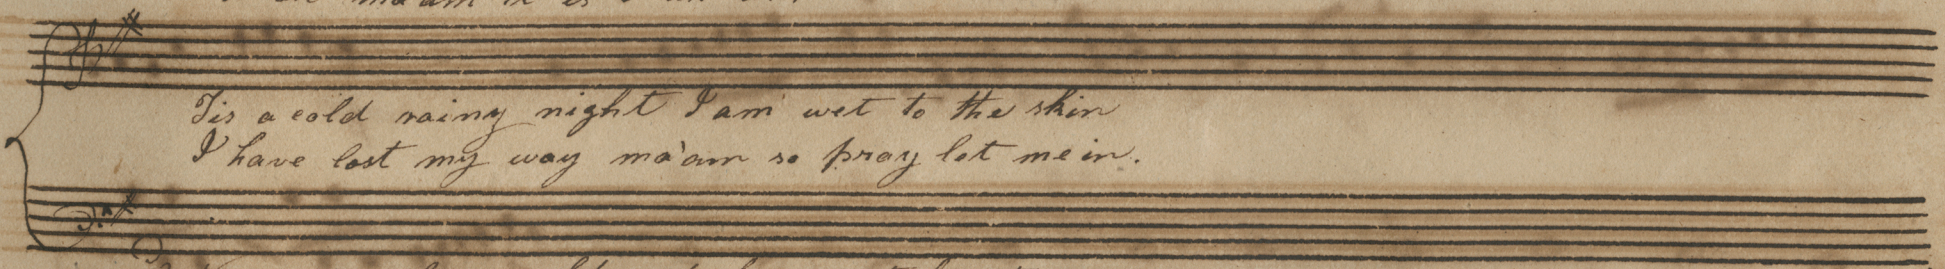 Tis a cold rainy night I am wet to the skin
I have lost my way ma'am so pray let me in.